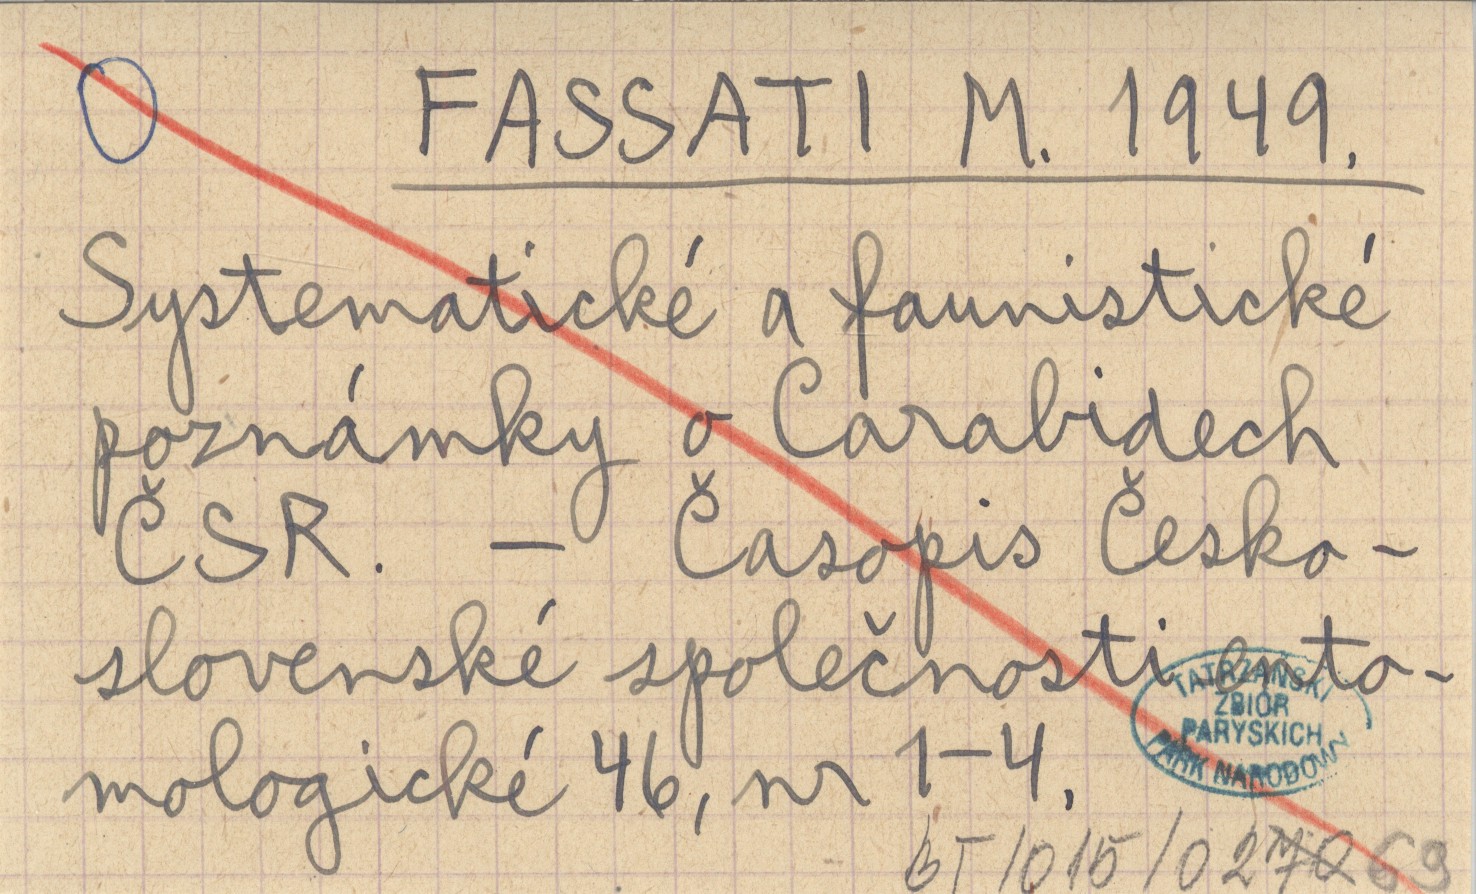 FASSATI M. 1949.
Systematické a faunistické
poznámky o Carabidech
ČSR. — Časopis Česko-
slovenské společnosti ento-
mologické 46, nr 1-4.
TATRZAŃSKI
ZBIÓR
PARYSKICH
PARK NARODOWY